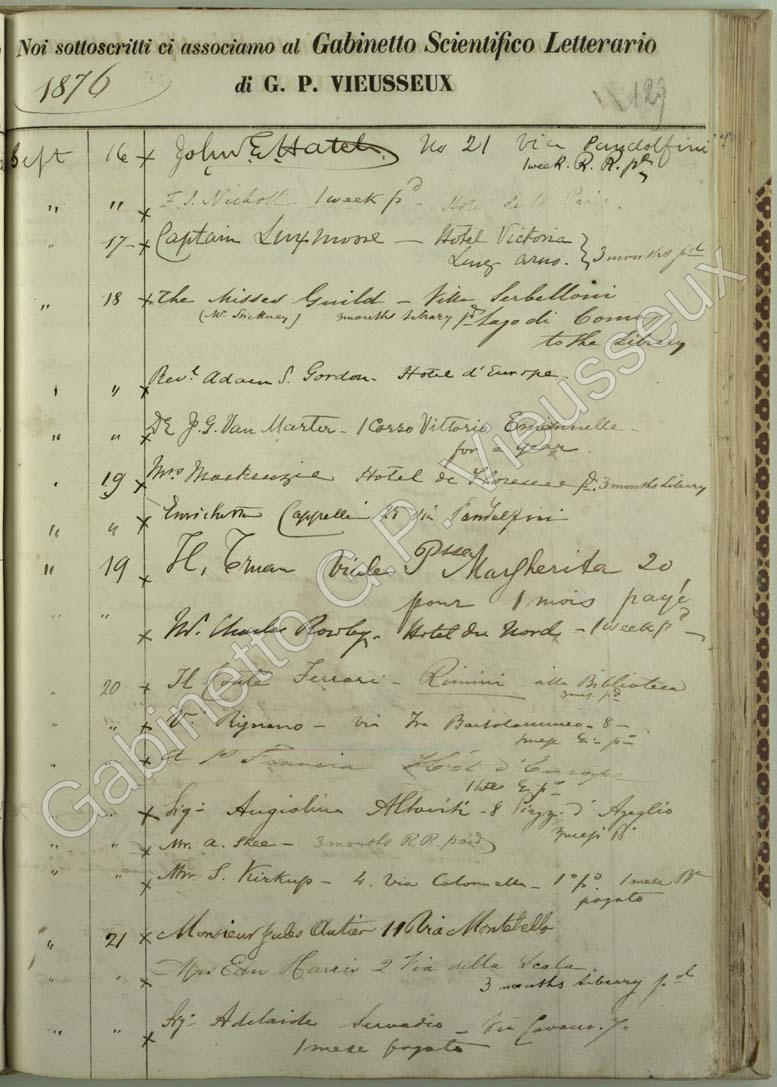 Noi sottoscritti ci associamo al Gabinetto Scientifico Letterario
di G. P. VIEUSSEUX
1876
129
Sept 16 x John E Hatch No 21 Via Pandolfini
1 week. R. R. pd
" " x Nicholl 1 week pd Hotel de la Paix
17 x Captain Luxmoore — Hotel Victoria
Lung arno. } 3 months pd
" 18 x The Misses Guild — Villa Serbelloni
3 months Library pd Lago di Como
to the Library
" " Revt. Adam S. Gordon. Hotel d'Europe.
" " x Dr J. G. Van Marter — 1 Corso Vittorio Emanuelle —
for a year.
" 19 x Mrs Mackenzie Hotel de Florence pd. 3 months Library
" " x Enrichetta Cappelli Via Pandolfini
" 19 x H, Truan Viale Pssa Margherita 20
pour 1 mois payé
" " x Mr. Charles Rowley. Hotel du Nord — 1 week pd
" 20 x Il Conte Ferrari — Rimini alla Biblioteca
" " x Vi Rignano — via Fra Bartolommeo — 8 —
" " x Francia Hôt d'Europe
" " x Sig. Angiolina Altoviti — 8 Piazz. d'Azeglio
" " x Mr. A. Skee — 3 months R R. paid
" " x Mr. S. Kirkup — 4. Via 1 mese
pagato
" 21 x Monsieur Jules Autier 11 Via Montebello
" " x Mrs Edn Harris 2 Via della Scala
3 months Library pd
" " x Sig. Adelaide Servadio — Via Cavour. 7.
1 mese pagato
Gabinetto G. P. Vieusseux